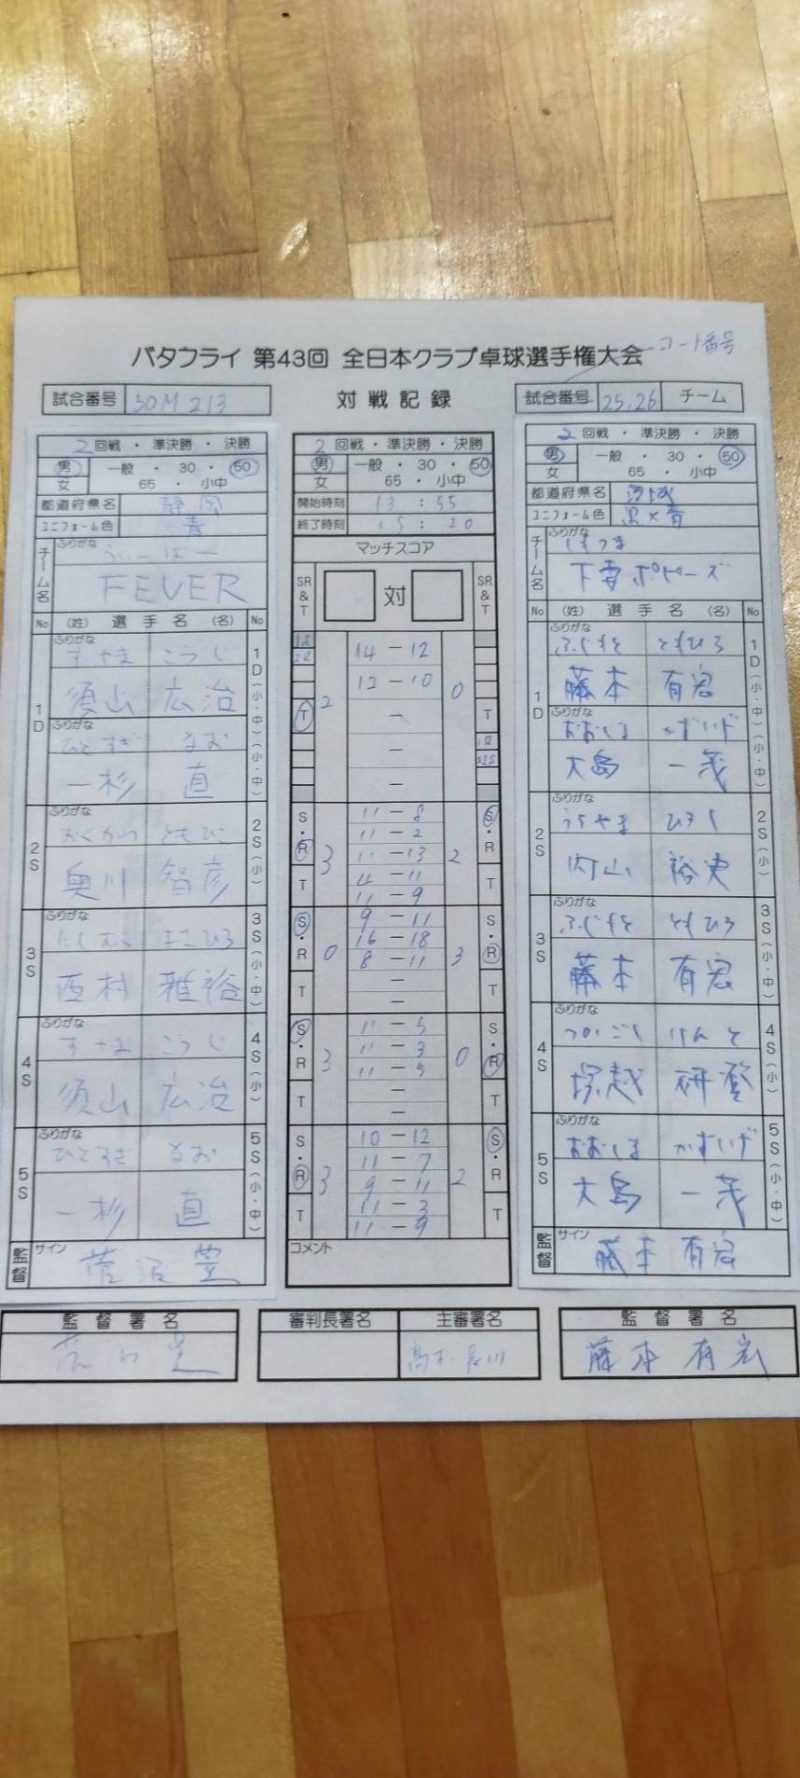 バタフライ 第43回 全日本クラブ卓球選手権大会
コート番号
試合番号 50M 213
対戦記録
試合番号 25.26 チーム
2回戦・準決勝・決勝
男 女 一般・30・50 65・小中
都道府県名 静岡
ユニフォーム色 青
チーム名 ふりがな ふぃーばー
FEVER
No (姓) 選手名 (名) No
1D ふりがな すやま こうじ 1D(小・中)(小・中)
須山 広治
ふりがな ひとすぎ なお
一杉 直
2S ふりがな おくがわ ともひこ 2S(小)
奥川 智彦
3S ふりがな にしむら まさひろ 3S(小・中)
西村 雅裕
4S ふりがな すやま こうじ 4S(小)
須山 広治
5S ふりがな ひとすぎ なお 5S(小・中)
一杉 直
監督 サイン 菅沼 豊
2回戦・準決勝・決勝
男 女 一般・30・50 65・小中
開始時刻 13:55
終了時刻 15:20
マッチスコア
SR&T 対 SR&T
2 14-12 0
12-10
T - T
-
-
S・R T 3 11-8 2 S・R T
11-2
11-13
4-11
11-9
S・R T 0 9-11 3 S・R T
16-18
8-11
-
-
S・R T 3 11-5 0 S・R T
11-3
11-5
-
-
S・R T 3 10-12 2 S・R T
11-7
9-11
11-3
11-9
コメント
2回戦・準決勝・決勝
男 女 一般・30・50 65・小中
都道府県名 茨城
ユニフォーム色 黒×青
チーム名 ふりがな しもつま
下妻ポピーズ
No (姓) 選手名 (名) No
1D ふりがな ふじもと ともひろ 1D(小・中)(小・中)
藤本 有宏
ふりがな おおしま かずしげ
大島 一茂
2S ふりがな うちやま ひろし 2S(小)
内山 裕史
3S ふりがな ふじもと ともひろ 3S(小・中)
藤本 有宏
4S ふりがな つかごし けんと 4S(小)
塚越 研登
5S ふりがな おおしま かずしげ 5S(小・中)
大島 一茂
監督 サイン 藤本 有宏
監督署名
審判長署名
主審署名
高木・長川
監督署名
藤本 有宏